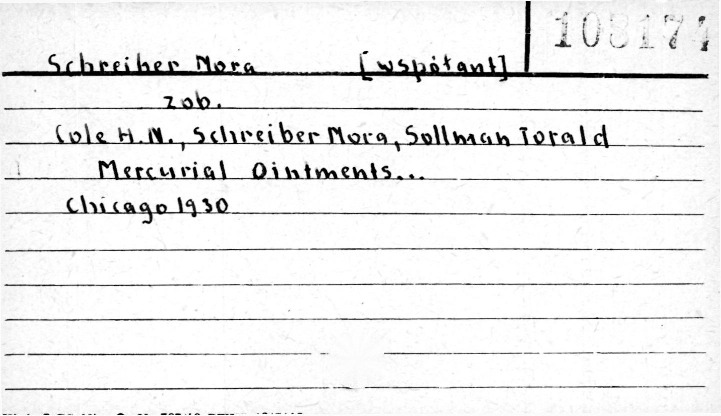 108174
Schreiber Nora [współaut]
zob.
Cole H.N., Schreiber Nora, Sollman Torald
Mercurial Ointments...
Chicago 1930